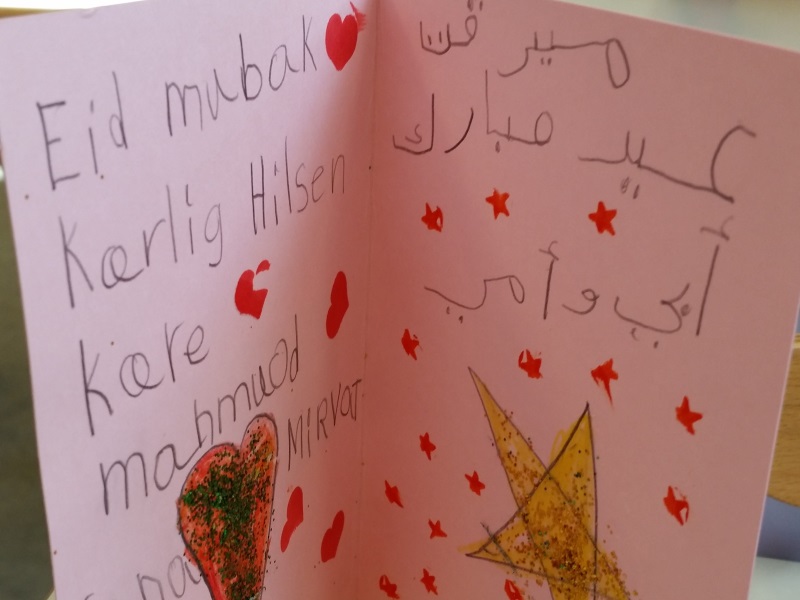 Eid mubak
Kærlig Hilsen
Kære
mahmuod
MIRVAT
عيد مبارك
أبي وأمي